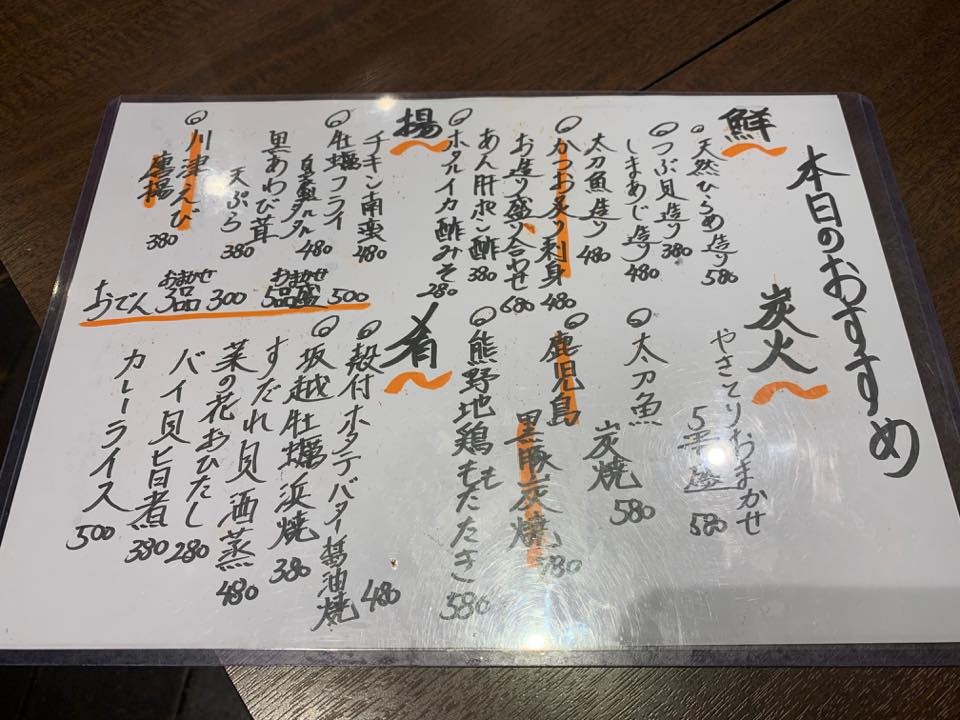 本日のおすすめ
鮮
天然ひらめ造り 580
つぶ貝造り 380
しまあじ造り 480
太刀魚造り 480
かつお炙り刺身 480
お造り盛り合わせ 680
あん肝ポン酢 380
ホタルイカ酢みそ 280
揚
チキン南蛮 480
牡蠣フライ
自家製タルタル 480
黒あわび茸
天ぷら 380
川津えび
唐揚 380
炭火
やきとりおまかせ
5本盛 580
太刀魚
炭焼 580
鹿児島
黒豚炭焼 780
熊野地鶏ももたたき 580
肴
殻付ホタテバター醤油焼 480
坂越牡蠣浜焼 380
すだれ貝酒蒸 480
菜の花おひたし 280
バイ貝旨煮 380
カレーライス 500
おでん おまかせ 3品 300 おまかせ 5品盛 500